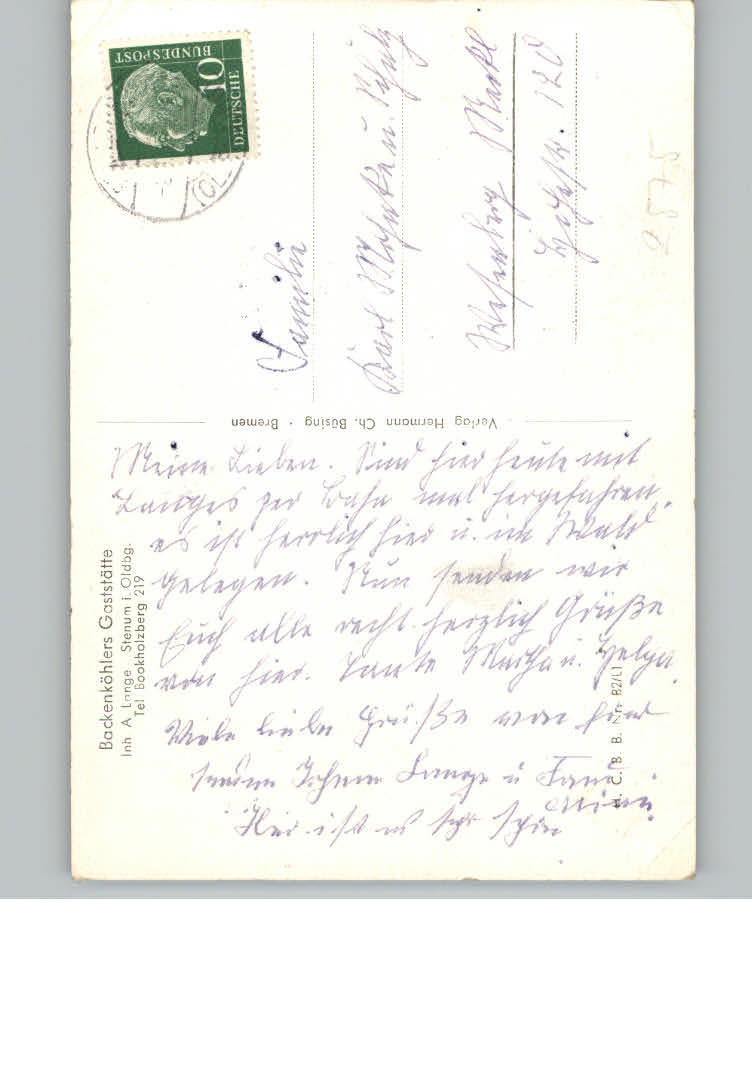 Backenköhlers Gaststätte
Inh A. Lange Stenum i. Oldbg.
Tel Bookholzberg 219
Meine Lieben. Sind hier heute mit
Langes per Bahn mal hergefahren,
es ist herrlich hier u. im Wald
gelegen. Nun senden wir
Euch alle recht herzlich Grüße
von hier. Tante Martha u. Helga.
Viele liebe Grüße von hier
senden Lange u Frau
Hier ist es sehr schön
Verlag Hermann Ch. Büsing · Bremen
H. C. B. B. Nr. B2/L1
DEUTSCHE
BUNDESPOST
10
(OL
Familie
Karl
120
2875